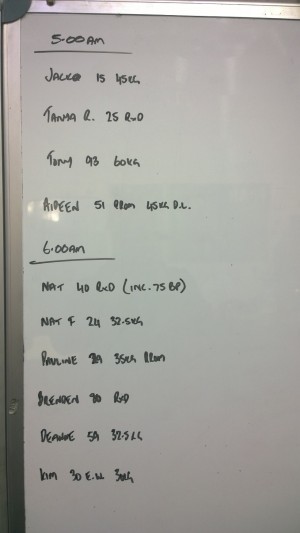 5:00AM
JACKO 15 45KG
TANYA R. 25 RxD
TONY 93 60KG
AIDEEN 51 45KG D.L.
6:00AM
NAT 40 RxD (INC. 75 BP)
NAT F 24 32.5KG
PAULINE 35KG
BRENDEN 90 RxD
DEANNE 59 32.5KG
KIM 30